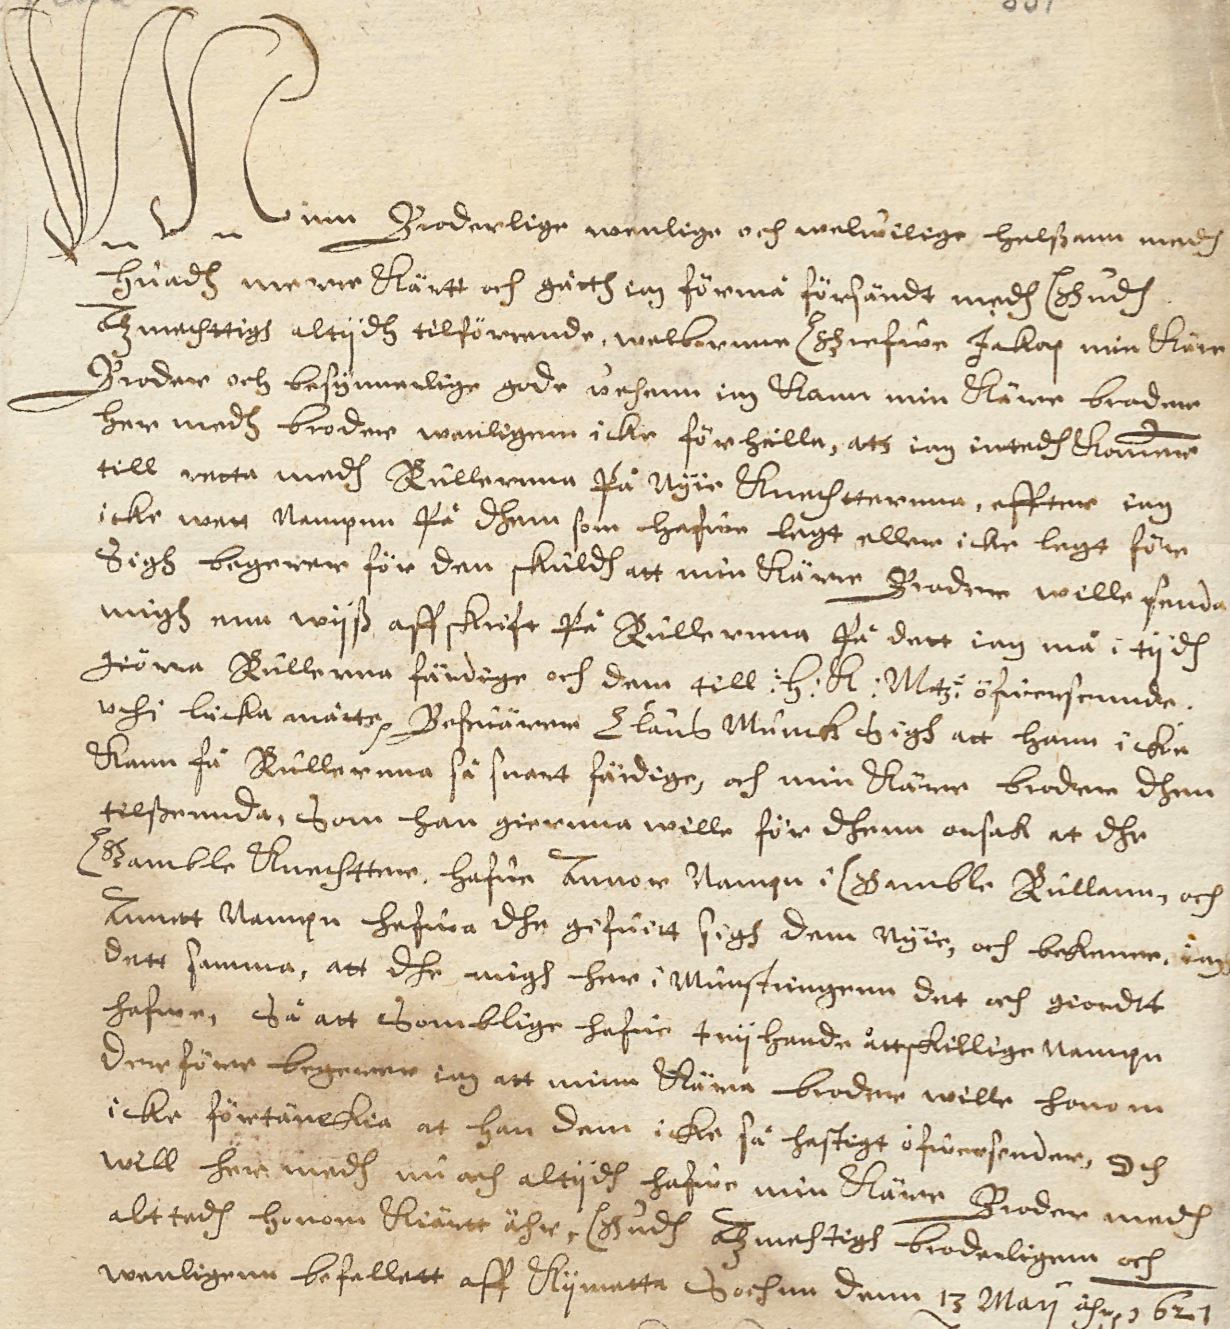 Minn Broderlige wenlige och welwilige helßann medh
huadh mere Kärtt och gått iag förmå försändt medh Gudh
Alzmechttigh altijdh tilförrende, welborne Grefwe Jakop min Käre
Broder och besynnerlige gode wehenn iag Kann min Käre broder
her medh broder wenligenn icke förhålla, att iag intedh Kommer
till retta medh Rullernna På Nyie Knechtternna, effter iag
icke wett Nampnn På dhem som hafwe lagt eller icke lagt före
Sigh begerer för den skuldh att min Käre Broder wille senda
migh enn wijß affskrift På Rullernna På dett iag må i tijdh
giöra Rullerna färdige och dem till H: K: Mtz: öfwersennde.
uthi lücka måtte, Besuärer Claus Munck Sigh att hann icke
Kann få Rullernna så snart färdige, och min Käre broder dhem
tilßennda, Som han giernna wille för dhenn orsak at dhe
Gamble Knechtter, hafue Annor Nampn i Gamble Rullann, och
Annatt Nampn hafwa dhe gifuitt sigh dem Nyie, och bekenner iag
dett samma, att dhe migh her i Munstringenn dat och giordtt
hafwe, Så att Somblige hafue trijhande åttskillige Nampn
derföre begerer iag att minn Käre broder wille honom
icke förtänckia at han dem icke så hastigt öfwersender, Och
will her medh nu och altijdh hafwe min Käre Broder medh
alt tedh honom Kiärtt ähr, Gudh Alzmechtigh broderligenn och
wenligenn befallett aff Kijmatta Sochnn denn 13 Maij åhr 1621